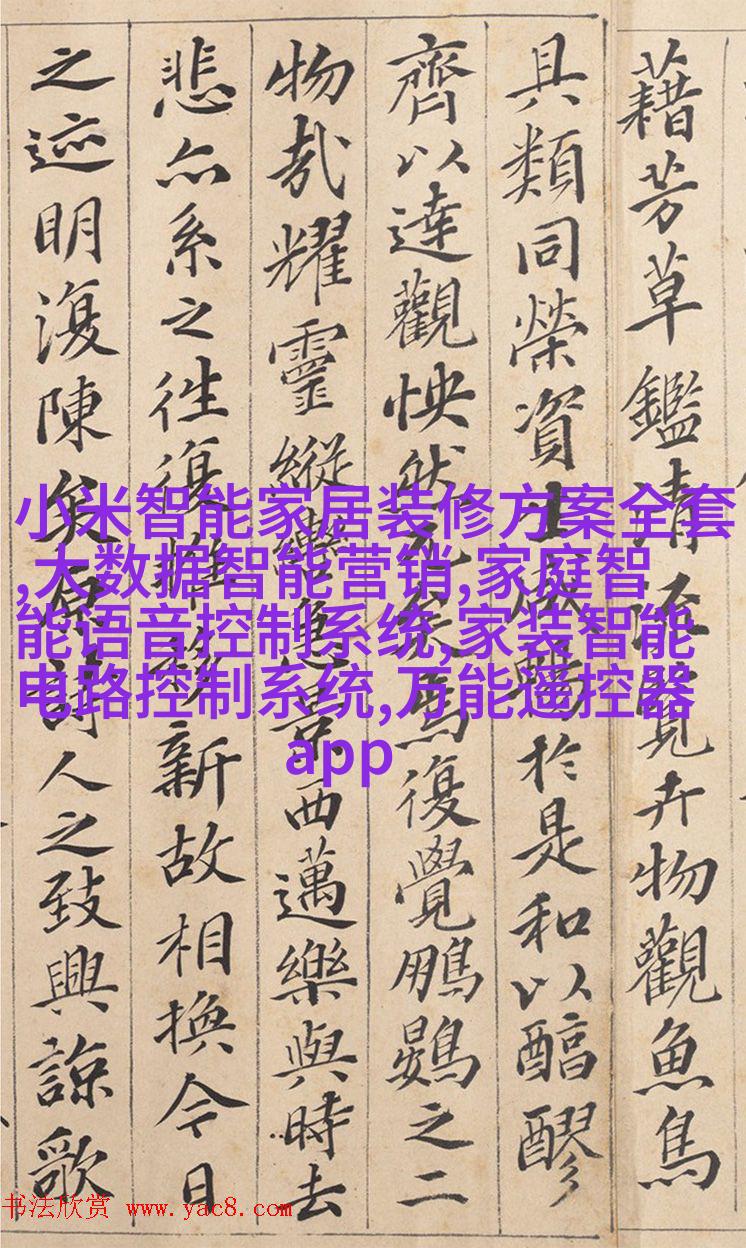 藉芳草鑑清流覽卉物觀魚鳥
具類同榮資生咸暢於是和以醕醪
齊以達觀怏然兀矣焉復覺鵬鷃之二
物哉耀靈縱轡急景西邁樂與時去
悲亦系之往復推移新故相換今日
之迹明復陳矣原詩人之致興諒歌
小米智能家居装修方案全套
,大数据智能营销,家庭智
能语音控制系统,家装智能
电路控制系统,万能遥控器
app
书法欣赏 www.yac8.com